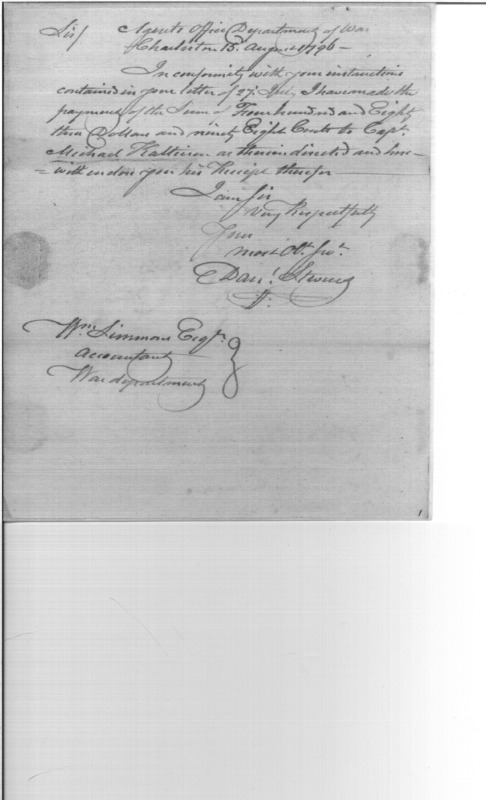 Sir/ Agents Office Department of War
Charleston 15 August 1796 —
In conformity with your instructions
contained in your letter of 27 I have made the
payment of the Sum of Four hundred and Eighty
three Dollars and ninety Eight Cents to Capt.
Michael Kalteisen as therein directed and here =
= with inclose you his Receipt therefor
I am Sir
Very Respectfully
Your
most Ob. Svt.
Danl. Stevens
Wm. Simmons Esqr.
Accountant
War department
1